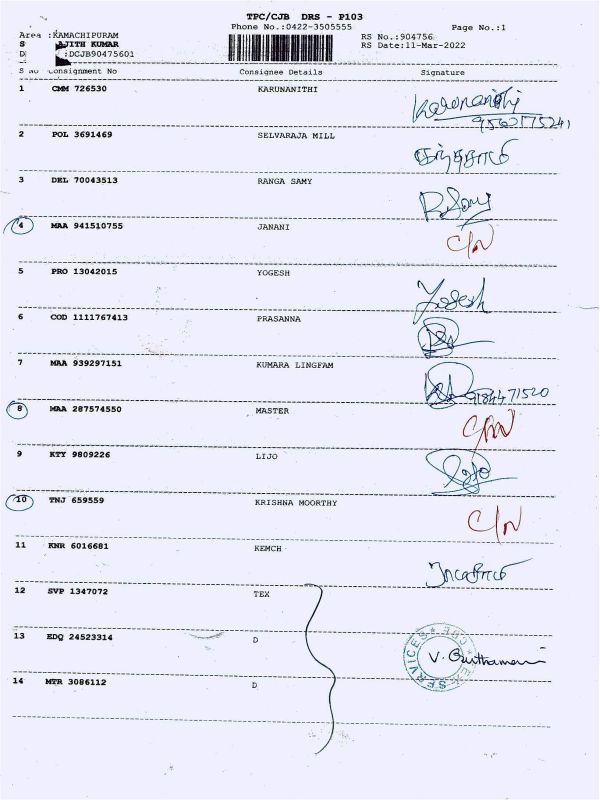 TPC/CJB DRS - P103
Phone No.:0422-3505555 Page No.:1
Area :KAMACHIPURAM RS No.:904756
AJITH KUMAR RS Date:11-Mar-2022
:DCJB90475601
S No Consignment No Consignee Details Signature
1 CMM 726530 KARUNANITHI Karunanithi
2 POL 3691469 SELVARAJA MILL
3 DEL 70043513 RANGA SAMY
4 MAA 941510755 JANANI C/N
5 PRO 13042015 YOGESH Yogesh
6 COD 1111767413 PRASANNA
7 MAA 939297151 KUMARA LINGFAM
8 MAA 287574550 MASTER C/N
9 KTY 9809226 LIJO Lijo
10 TNJ 659559 KRISHNA MOORTHY C/N
11 KNR 6016681 KEMCH
12 SVP 1347072 TEX
13 EDQ 24523314 D
14 MTR 3086112 D
SERVICES